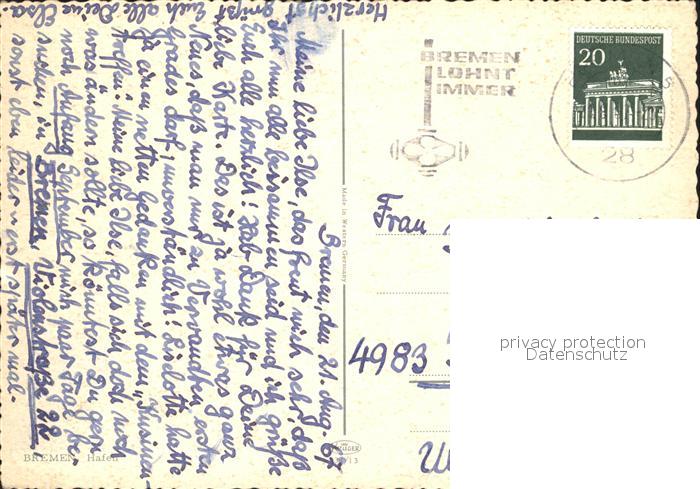 DEUTSCHE BUNDESPOST
20
BREMEN
LOHNT
IMMER
28
Bremen, den 21. Aug. 67
Meine liebe Ilse, das freut mich sehr, daß
Ihr nun alle beisammen seid und ich grüße
Euch alle herzlich! Hab Dank für Deine
liebe Karte. Das ist ja wohl etwas ganz
Neues, daß man nur zu Verwandten ersten
Grades darf, unverständlich! Liselotte hatte
ja einen netten Gedanken mit dem "Kusinen-
treffen". Meine liebe Ilse, falls sich doch noch
was ändern sollte, so könntest Du gern
noch Anfang September mich paar Tage be-
suchen, in Bremen, Violenstraße 22
sonst eben leider erst nächstes mal.
Herzlichst grüßt Euch alle Deine Elsa.
Made in Western Germany
Frau
4983
KRÜGER
BREMEN Hafen
privacy protection
Datenschutz